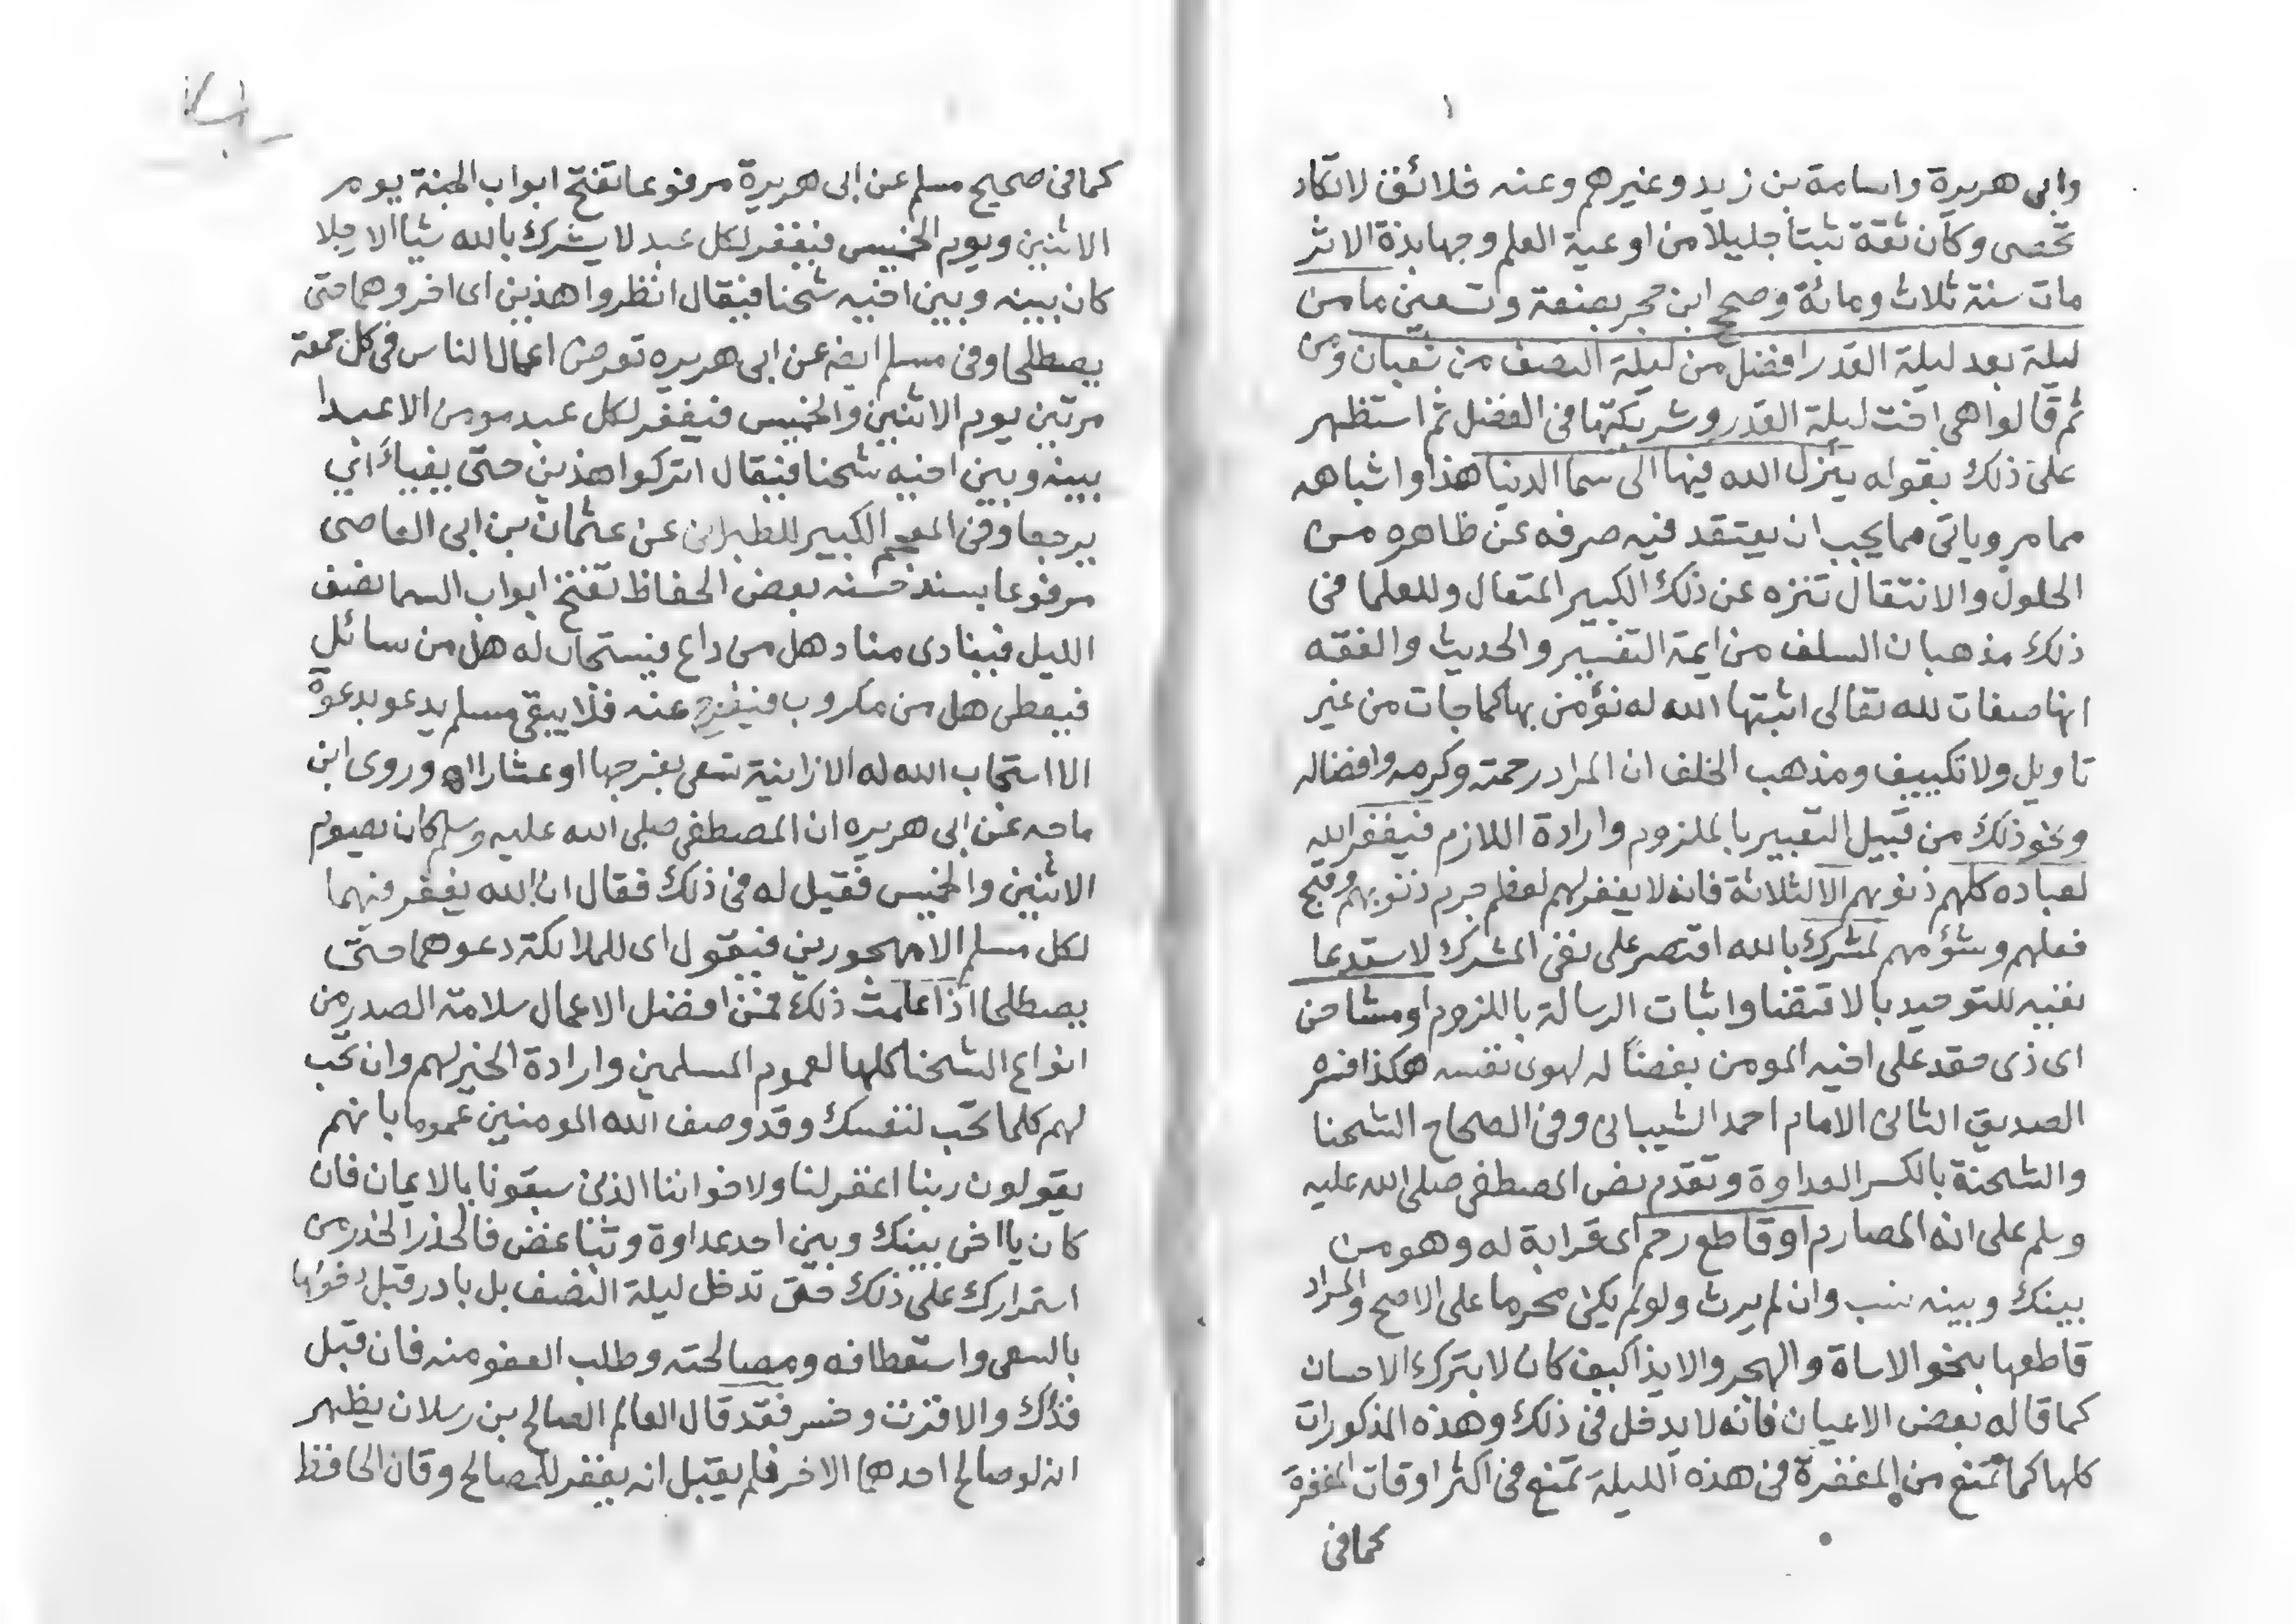 وابى هريرة واسامة بن زيد وغيرهم وعنه خلائق لا تكاد
تحصى وكان ثقة ثبتا جليلا من اوعية العلم وجهابذة الاثر
مات سنة ثلاث ومائة وصحح ابن حجر بضعة وتسعين ما من
ليلة بعد ليلة القدر افضل من ليلة النصف من شعبان ومن
ثم قالوا هى اخت ليلة القدر وشريكتها فى الفضل ثم استظهر
على ذلك بقوله ينزل الله فيها الى سما الدنيا هذا واشباهه
مما مر وياتى مما يجب ان يعتقد فيه صرفه عن ظاهره من
الحلول والانتقال تنزه عن ذلك الكبير المتعال وللعلما فى
ذلك مذهبان السلف من ايمة التفسير والحديث والفقه
انها صفات لله تعالى اثبتها الله له نؤمن بها كما جات من غير
تاويل ولا تكييف ومذهب الخلف ان المراد رحمته وكرمه وافضاله
ونحو ذلك من قبيل التعبير بالملزوم وارادة اللازم فيغفر الله
لعباده كلهم ذنوبهم الا لثلاثة فانه لا يغفر لهم لعظم جرم ذنوبهم وقبح
فعلهم وشؤمهم لمشرك بالله اقتصر على نفى المشرك لاستدعا
نفيه للتوحيد بالاقتضا واثبات الرسالة باللزوم او مشاحن
اى ذى حقد على اخيه المومن بغضاً له لهوى نفسه هكذا فسره
الصديق الثانى الامام احمد الشيبانى وفى الصحاح الشحنا
والشحنة بالكسر العداوة وتقدم نص المصطفى صلى الله عليه
وسلم على انه المصارم او قاطع رحم اى قرابة له وهو من
بينك وبينه نسب وان لم يرث ولو لم يكن محرما على الاصح والمراد
قاطعها بنحو الاساة والهجر والايذا كيف كان لا بترك الاحسان
كما قاله بعض الاعيان فانه لا يدخل فى ذلك وهذه المذكورات
كلها كما تمنع من المغفرة فى هذه الليلة تمنع فى اكثر اوقات المغفرة
كما فى
كما فى صحيح مسلم عن ابى هريرة مرفوعا تفتح ابواب الجنة يوم
الاثنين ويوم الخميس فيغفر لكل عبد لا يشرك بالله شيا الا رجلا
كان بينه وبين اخيه شحنا فيقال انظروا هذين اى اخروهما حتى
يصطلحا وفى مسلم ايضه عن ابى هريره تعرض اعمال الناس فى كل جمعة
مرتين يوم الاثنين والخميس فيغفر لكل عبد مومن الا عبدا
بينه وبين اخيه شحنا فيقال اتركوا هذين حتى يفيا اى
يرجعا وفى المعجم الكبير للطبرانى عن عثمان بن ابى العاصى
مرفوعا بسند حسنه بعض الحفاظ تفتح ابواب السما نصف
الليل فينادى مناد هل من داع فيستجاب له هل من سائل
فيعطى هل من مكروب فيفرج عنه فلا يبقى مسلم يدعو بدعوة
الا استجاب الله له الا زانية تسعى بفرجها او عشارا اه وروى ابن
ماجه عن ابى هريره ان المصطفى صلى الله عليه وسلم كان يصوم
الاثنين والخميس فقيل له فى ذلك فقال ان الله يغفر فيهما
لكل مسلم الا مهجورين فيقول اى للملائكة دعوهما حتى
يصطلحا اذا علمت ذلك فمن افضل الاعمال سلامة الصدر من
انواع الشحنا كلها لعموم المسلمين وارادة الخير لهم وان تحب
لهم كلما تحب لنفسك وقد وصف الله المومنين عموما بانهم
يقولون ربنا اغفر لنا ولاخواننا الذين سبقونا بالايمان فان
كان يا اخى بينك وبين احد عداوة وتباغض فالحذر الحذر من
استمرارك على ذلك حتى تدخل ليلة النصف بل بادر قبل دخولها
بالسعى واستعطافه ومصالحته وطلب العفو منه فان قبل
فذاك والا فزت وخسر فقد قال العالم الصالح بن رسلان يظهر
انه لو صالح احدهما الاخر فلم يقبل انه يغفر للمصالح وقال الحافظ